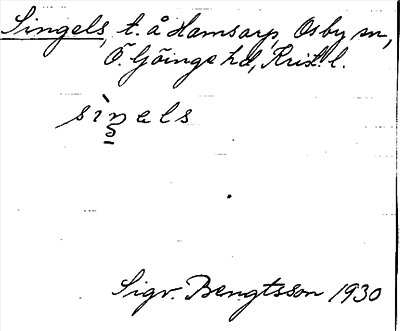 Singels, t. å Hamsarp, Osby sn,
Ö. Göinge hd, Krist. l.
sìŋels
Sigv. Bengtsson 1930